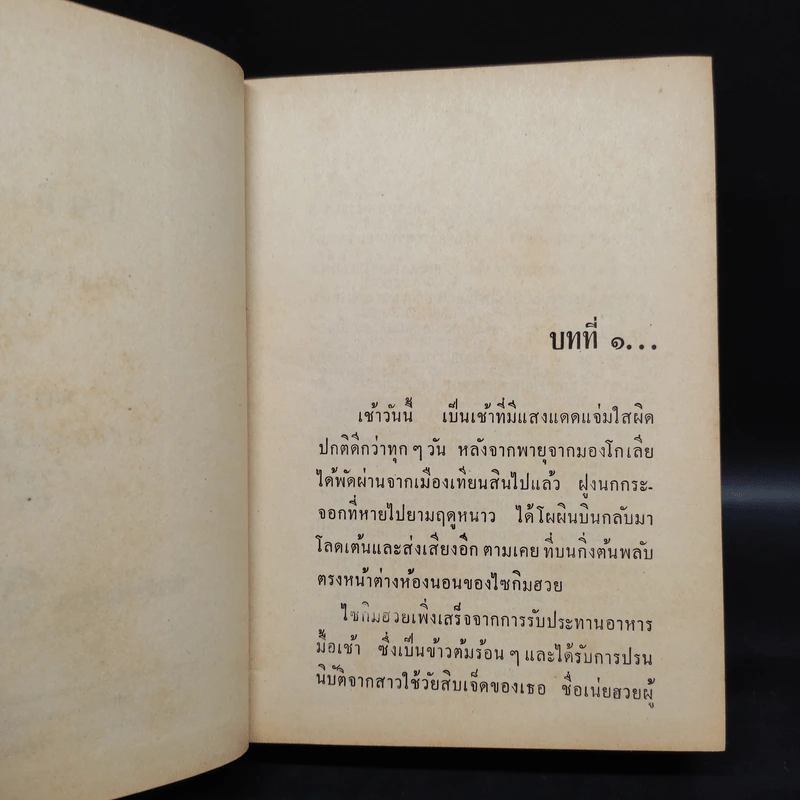 บทที่ ๑...
เช้าวันนี้ เป็นเช้าที่มีแสงแดดแจ่มใสผิด
ปกติดีกว่าทุก ๆ วัน หลังจากพายุจากมองโกเลีย
ได้พัดผ่านจากเมืองเทียนสินไปแล้ว ฝูงนกกระ-
จอกที่หายไปยามฤดูหนาว ได้โผผินบินกลับมา
โลดเต้นและส่งเสียงอีก ตามเคย ที่บนกิ่งต้นพลับ
ตรงหน้าต่างห้องนอนของไซกิมฮวย
ไซกิมฮวยเพิ่งเสร็จจากการรับประทานอาหาร
มื้อเช้า ซึ่งเป็นข้าวต้มร้อน ๆ และได้รับการปรน
นิบัติจากสาวใช้วัยสิบเจ็ดของเธอ ชื่อเน่ยฮวยผู้